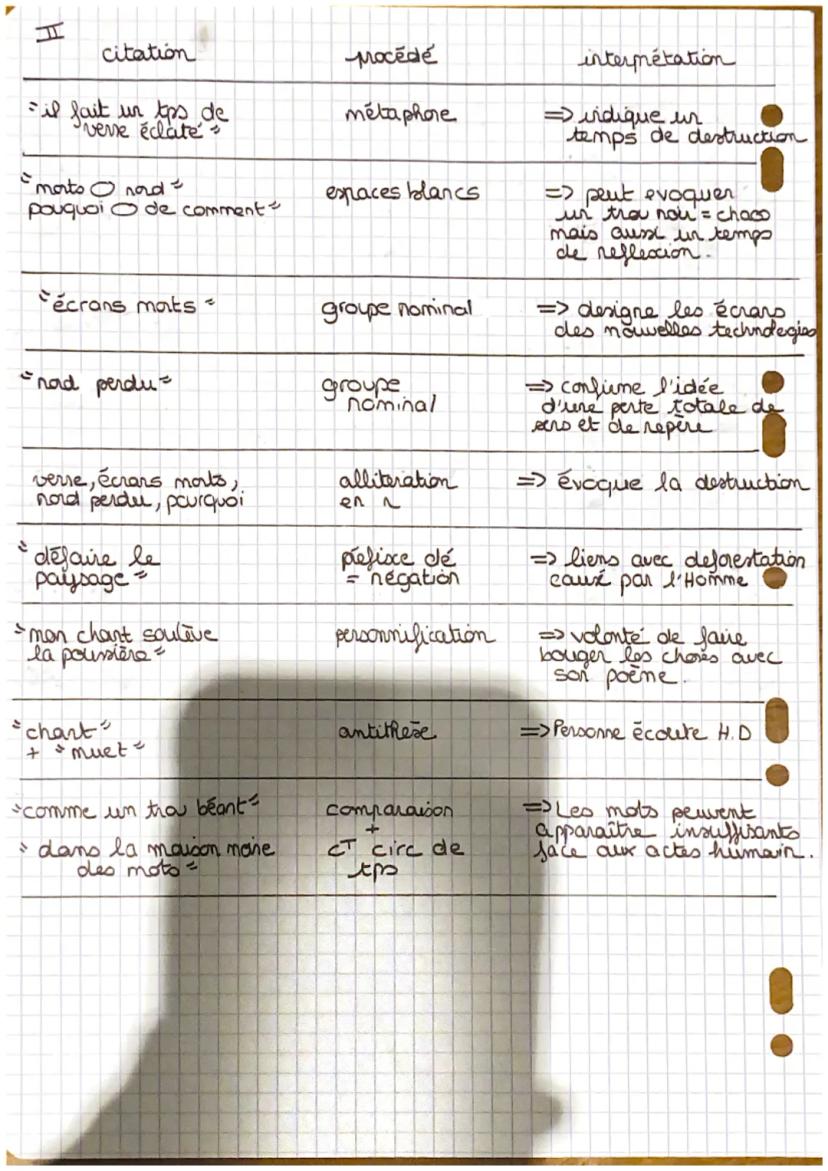 II
citation procédé interprétation
"il fait un tps de métaphore => indique un
verre éclaté" temps de destruction
"morts O nord" espaces blancs => peut evoquer
pouquoi O de comment" un trou noir = chaos
mais aussi un temps
de reflexion.
"écrans morts" groupe nominal => designe les écrans
des nouvelles technologies
"nord perdu" groupe => confirme l'idée
nominal d'une perte totale de
sens et de repère
verre, écrans morts, alliteration => évoque la destruction
nord perdu, pourquoi en r
"défaire le préfixe dé => liens avec deforestation
paysage" = négation causé par l'Homme
"mon chant soulève personnification => volonté de faire
la poussière" bouger les choses avec
son poème.
"chant" antithèse => Personne écoute H.D
+ "muet"
"comme un trou béant" comparaison => Les mots peuvent
+ apparaître insuffisants
"dans la maison noire cT circ de face aux actes humain.
des mots" tps